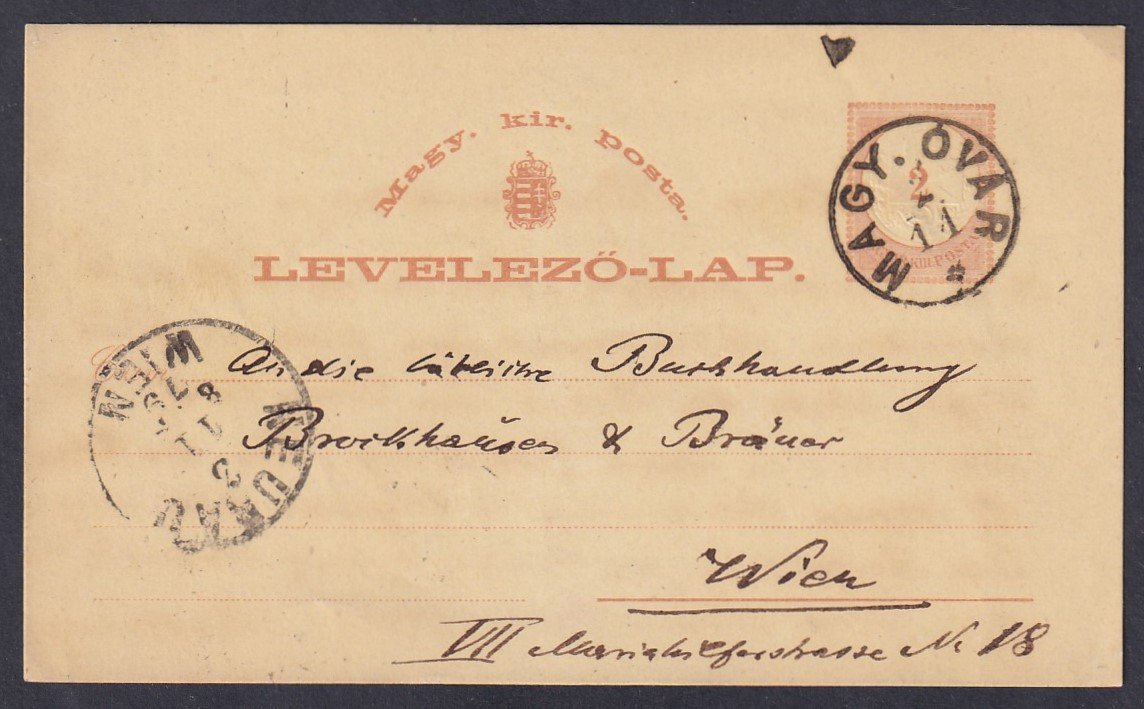 Magy. kir. posta.
2
KIR. POSTA
MAGY. ÓVÁR
11
LEVELEZŐ-LAP.
WIEN
NEUBAU
8 11
An die löbliche Buchhandlung
Brockhausen & Bräuer
Wien
VII Mariahilferstrasse No 18